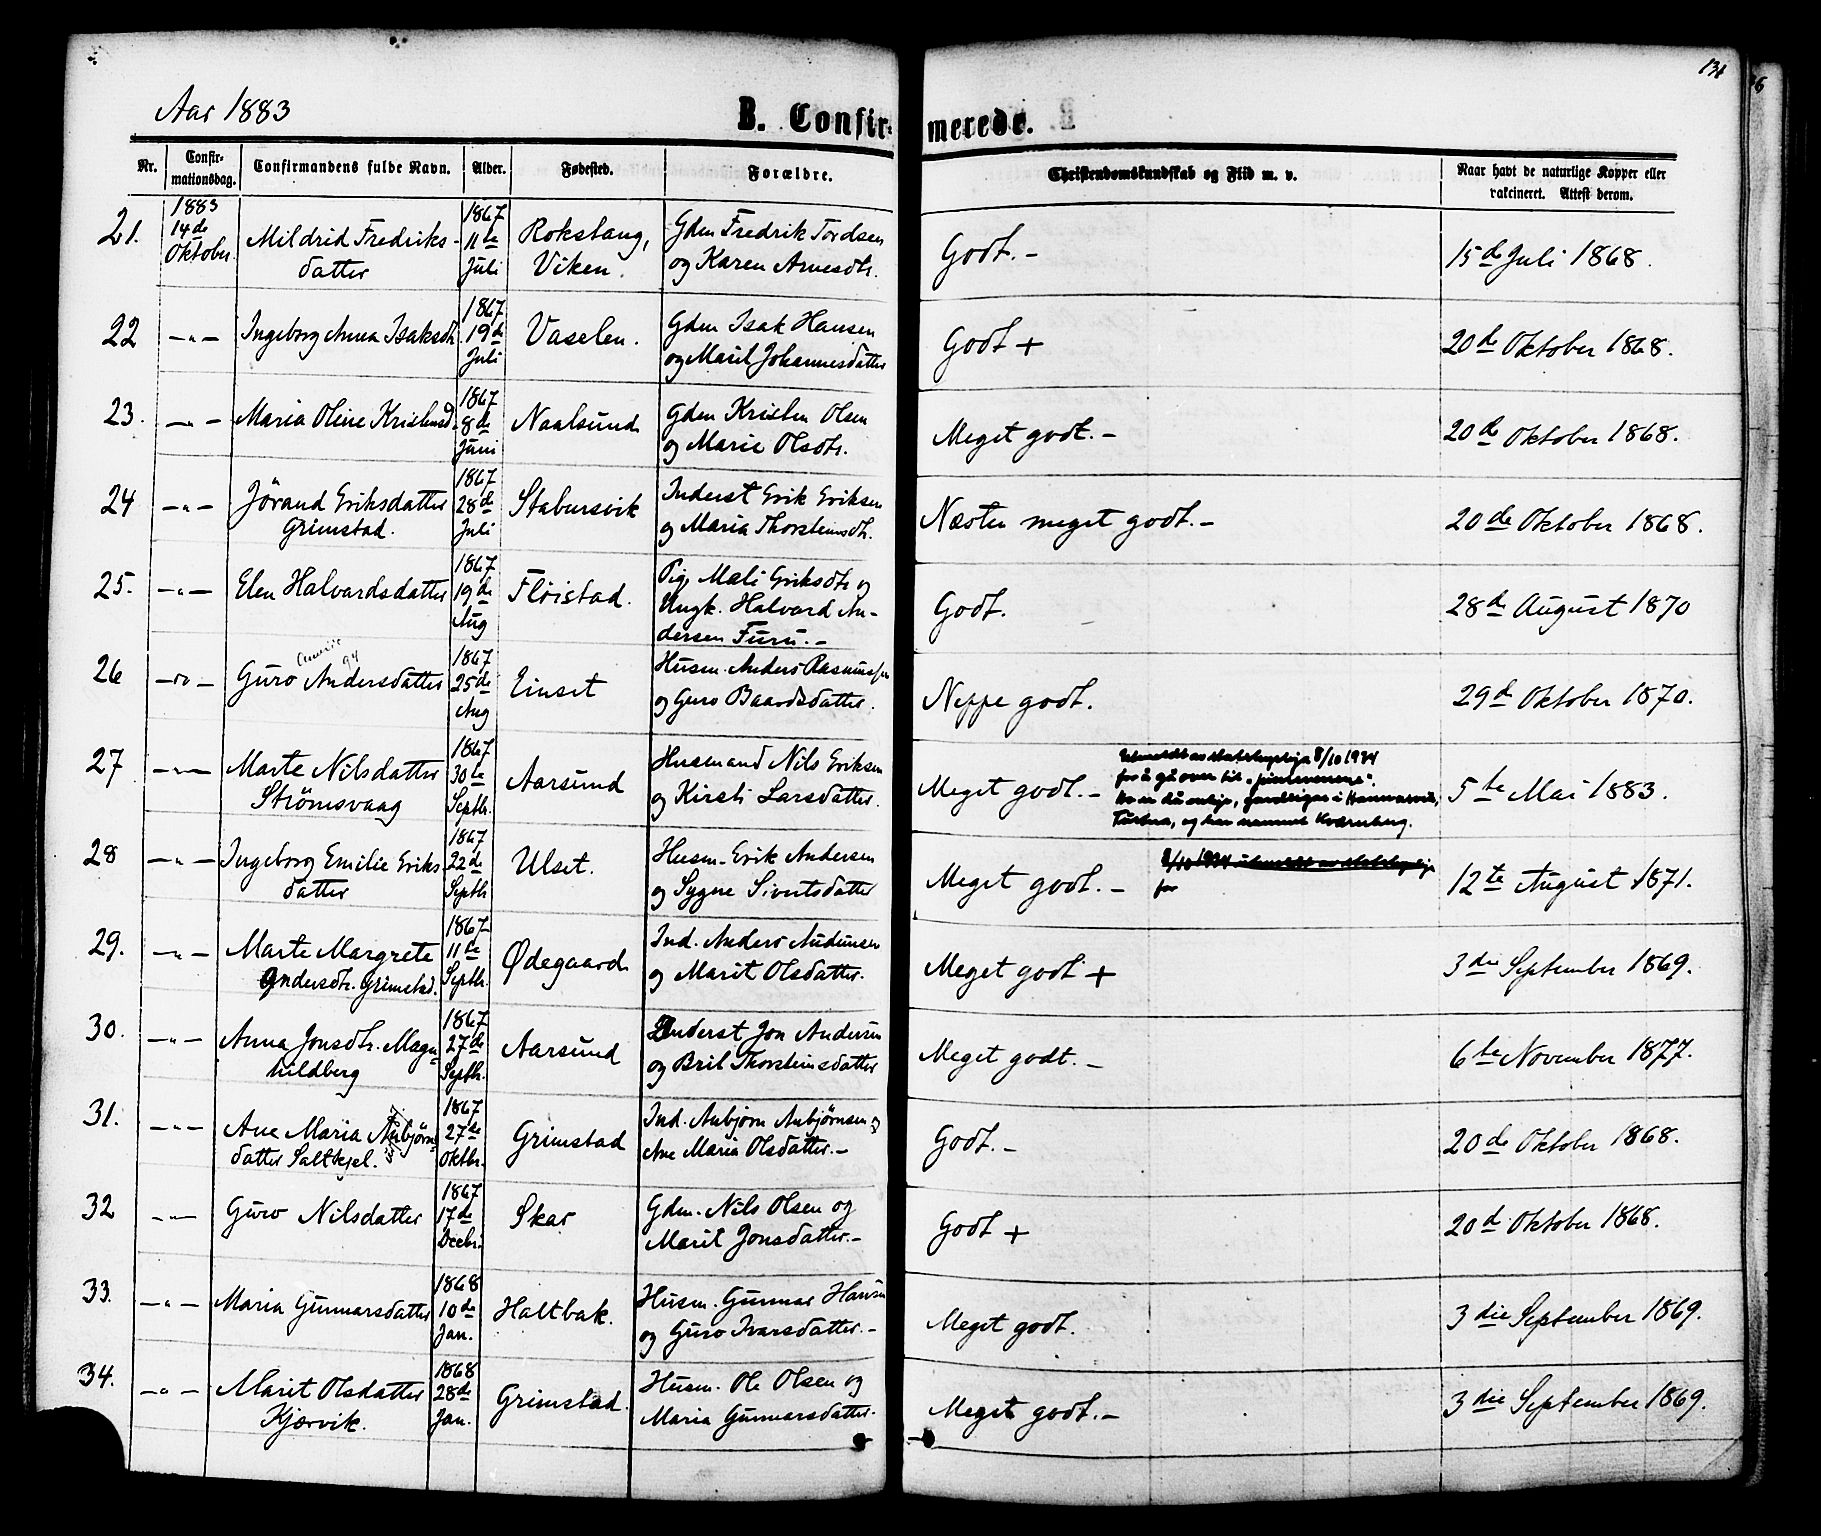 131
6
Aar 1883
B. Confirmerede.
Nr.
Confirmationsdag.
Confirmandens fulde Navn.
Alder.
Fødested.
Forældre.
Christendomskundskab og Flid m. v.
Naar havt de naturlige Kopper eller
vakcineret. Attest derom.
21. 1883 14de Oktober. Mildrid Fredriksdatter 1867 11te Juli Rokstang, Viken. Gdm Fredrik Tordsen og Karen Arnesdtr. Godt. - 15de Juli 1868.
22 - " - Ingeborg Anna Isaksdtr. 1867 19de Juli Vaselen. Gdm Isak Hansen og Marit Johannesdatter Godt + 20de Oktober 1868.
23. - " - Maria Oline Kristensd. 1867 8de Juni Naalsund Gdm Kristen Olsen og Marie Olsdtr. Meget godt. - 20de Oktober 1868.
24 - " - Jörand Eriksdatter Grimstad. 1867 28de Juli Stabursvik Inderst Erik Eriksen og Maria Thorsteinsdtr. Næsten meget godt. - 20de Oktober 1868.
25. - " - Elen Halvardsdatter 1867 19de Aug Fløistad. Pig. Mali Eriksdtr og Ungk. Halvard Andersen Furu. - Godt. 28de August 1870
26 - " - Guro Andersdatter 1867 25de Aug Einset Husm. Anders Rasmussen og Guro Baardsdatter. Neppe godt. 29d Oktober 1870.
27 - " - Marte Nilsdatter Strömsvaag 1867 30te Septbr. Aarsund Husmand Nils Eriksen og Kirsti Larsdatter. Meget godt. - Utmeldt av statskyrkja 8/10 1934
for å gå over til "pinsevenene".
Ho er då enkje, Tustna, og har namnet Kvernberg. 5te Mai 1883.
28 - " - Ingeborg Emilie Eriksdatter 1867 22de Septbr Ulset. Husm. Erik Andersen og Sygne Sivertsdatter Meget godt. - 8/10 1934 utmeldt av statskyrkja
for 12te August 1871.
29. - " - Marte Margrete Andersdtr. Grimstad. 1867 11te Septbr. Ødegaard Ind. Anders Audunsen og Marit Olsdatter. Meget godt + 3die September 1869.
30. - " - Anna Jonsdtr. Magnhildberg 1867 27de Septbr. Aarsund Inderst Jon Andersen og Brit Thorsteinsdatter Meget godt. - 6te November 1877.
31. - " - Ane Maria Anbjörnsdatter Saltkjel. 1867 27de Oktbr. Grimstad Ind. Anbjörn Anbjörnsen og Ane Maria Olsdatter. - Godt. - 20de Oktober 1868.
32 - " - Guro Nilsdatter 1867 17de Decbr. Skar Gdm. Nils Olsen og Marit Jonsdatter. - Godt + 20d Oktober 1868.
33. - " - Maria Gunnarsdatter 1868 10de Jan. Haltbak. Husm. Gunnar Hansen og Guro Ivarsdatter. - Meget godt. 3die September 1869.
34. - " - Marit Olsdatter Kjørvik. 1868 28de Jan. Grimstad. Husm. Ole Olsen og Maria Gunnarsdatter. Meget godt. - 3die September 1869.